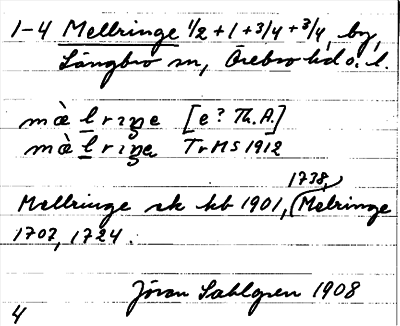 1-4 Mellringe 1/2 + 1 + 3/4 + 3/4, by,
Längbro sn, Örebro hd o. l.
mæ̀lrɪŋe [e? Th.A.]
mæ̀lrɪŋa TvHS 1912
1738,
Mellringe sk hb 1901, (Melringe
1707, 1724.
Jöran Sahlgren 1908
4